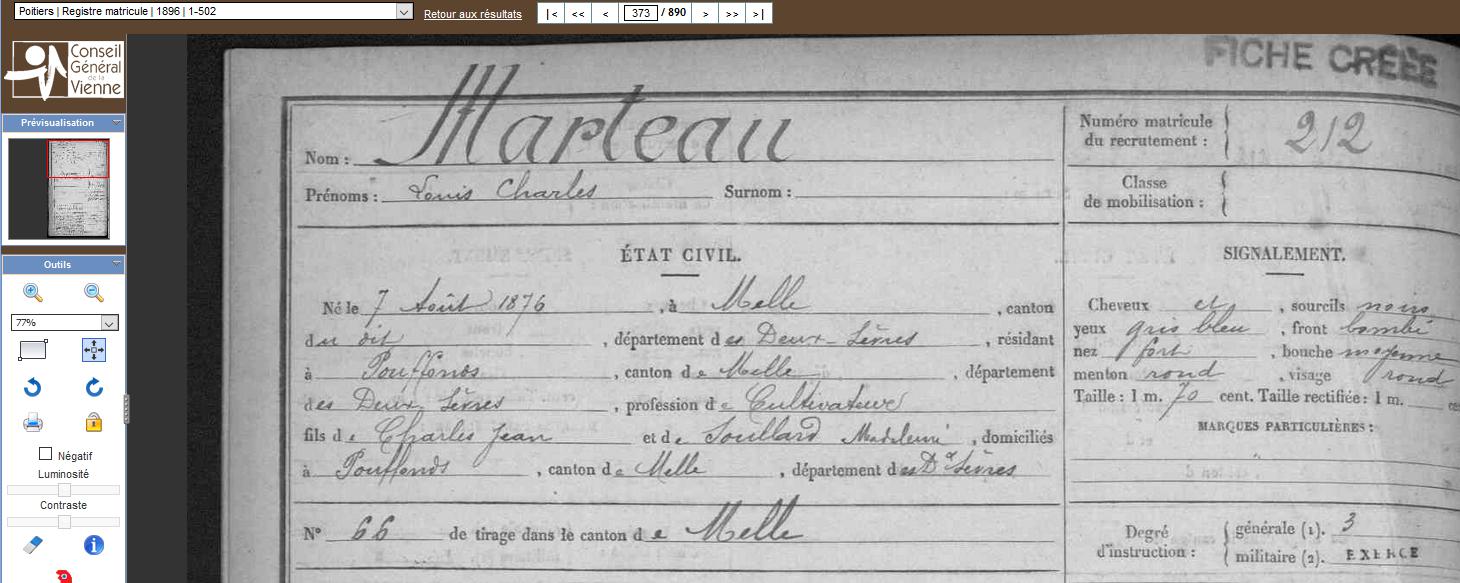 Poitiers | Registre matricule | 1896 | 1-502
Retour aux résultats
|< << < 373 / 890 > >> >|
Conseil
Général
de la
Vienne
Prévisualisation
Outils
77%
Négatif
Luminosité
Contraste
FICHE CRÉÉE
Nom : Marteau
Prénoms : Louis Charles Surnom :
Numéro matricule
du recrutement : 212
Classe
de mobilisation :
ÉTAT CIVIL.
Né le 7 Août 1876, à Melle, canton
du dit, département des Deux-Sèvres, résidant
à Pouffonds, canton de Melle, département
des Deux Sèvres, profession de Cultivateur
fils de Charles Jean et de Soullard Madeleine, domiciliés
à Pouffonds, canton de Melle, département des Dx Sèvres
N° 66 de tirage dans le canton de Melle
SIGNALEMENT.
Cheveux et, sourcils noirs
yeux gris bleu, front bombé
nez fort, bouche moyenne
menton rond, visage rond
Taille : 1 m. 70 cent. Taille rectifiée : 1 m.
MARQUES PARTICULIÈRES :
Degré
d'instruction :
générale (1). 3
militaire (2). EXERCÉ